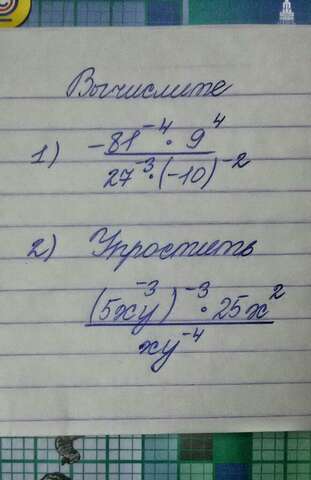 Вычислите
1) -81⁻⁴ · 9⁴
27⁻³ · (-10)⁻²
2) Упростить
(5xy⁻³)⁻³ · 25x²
xy⁻⁴